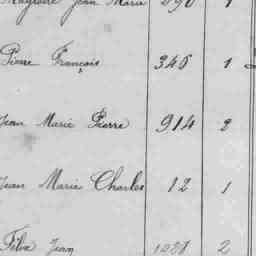 Jean Marie 1
Pierre François 345 1
Jean Marie Pierre 914 2
Jean Marie Charles 12 1
Jean 2